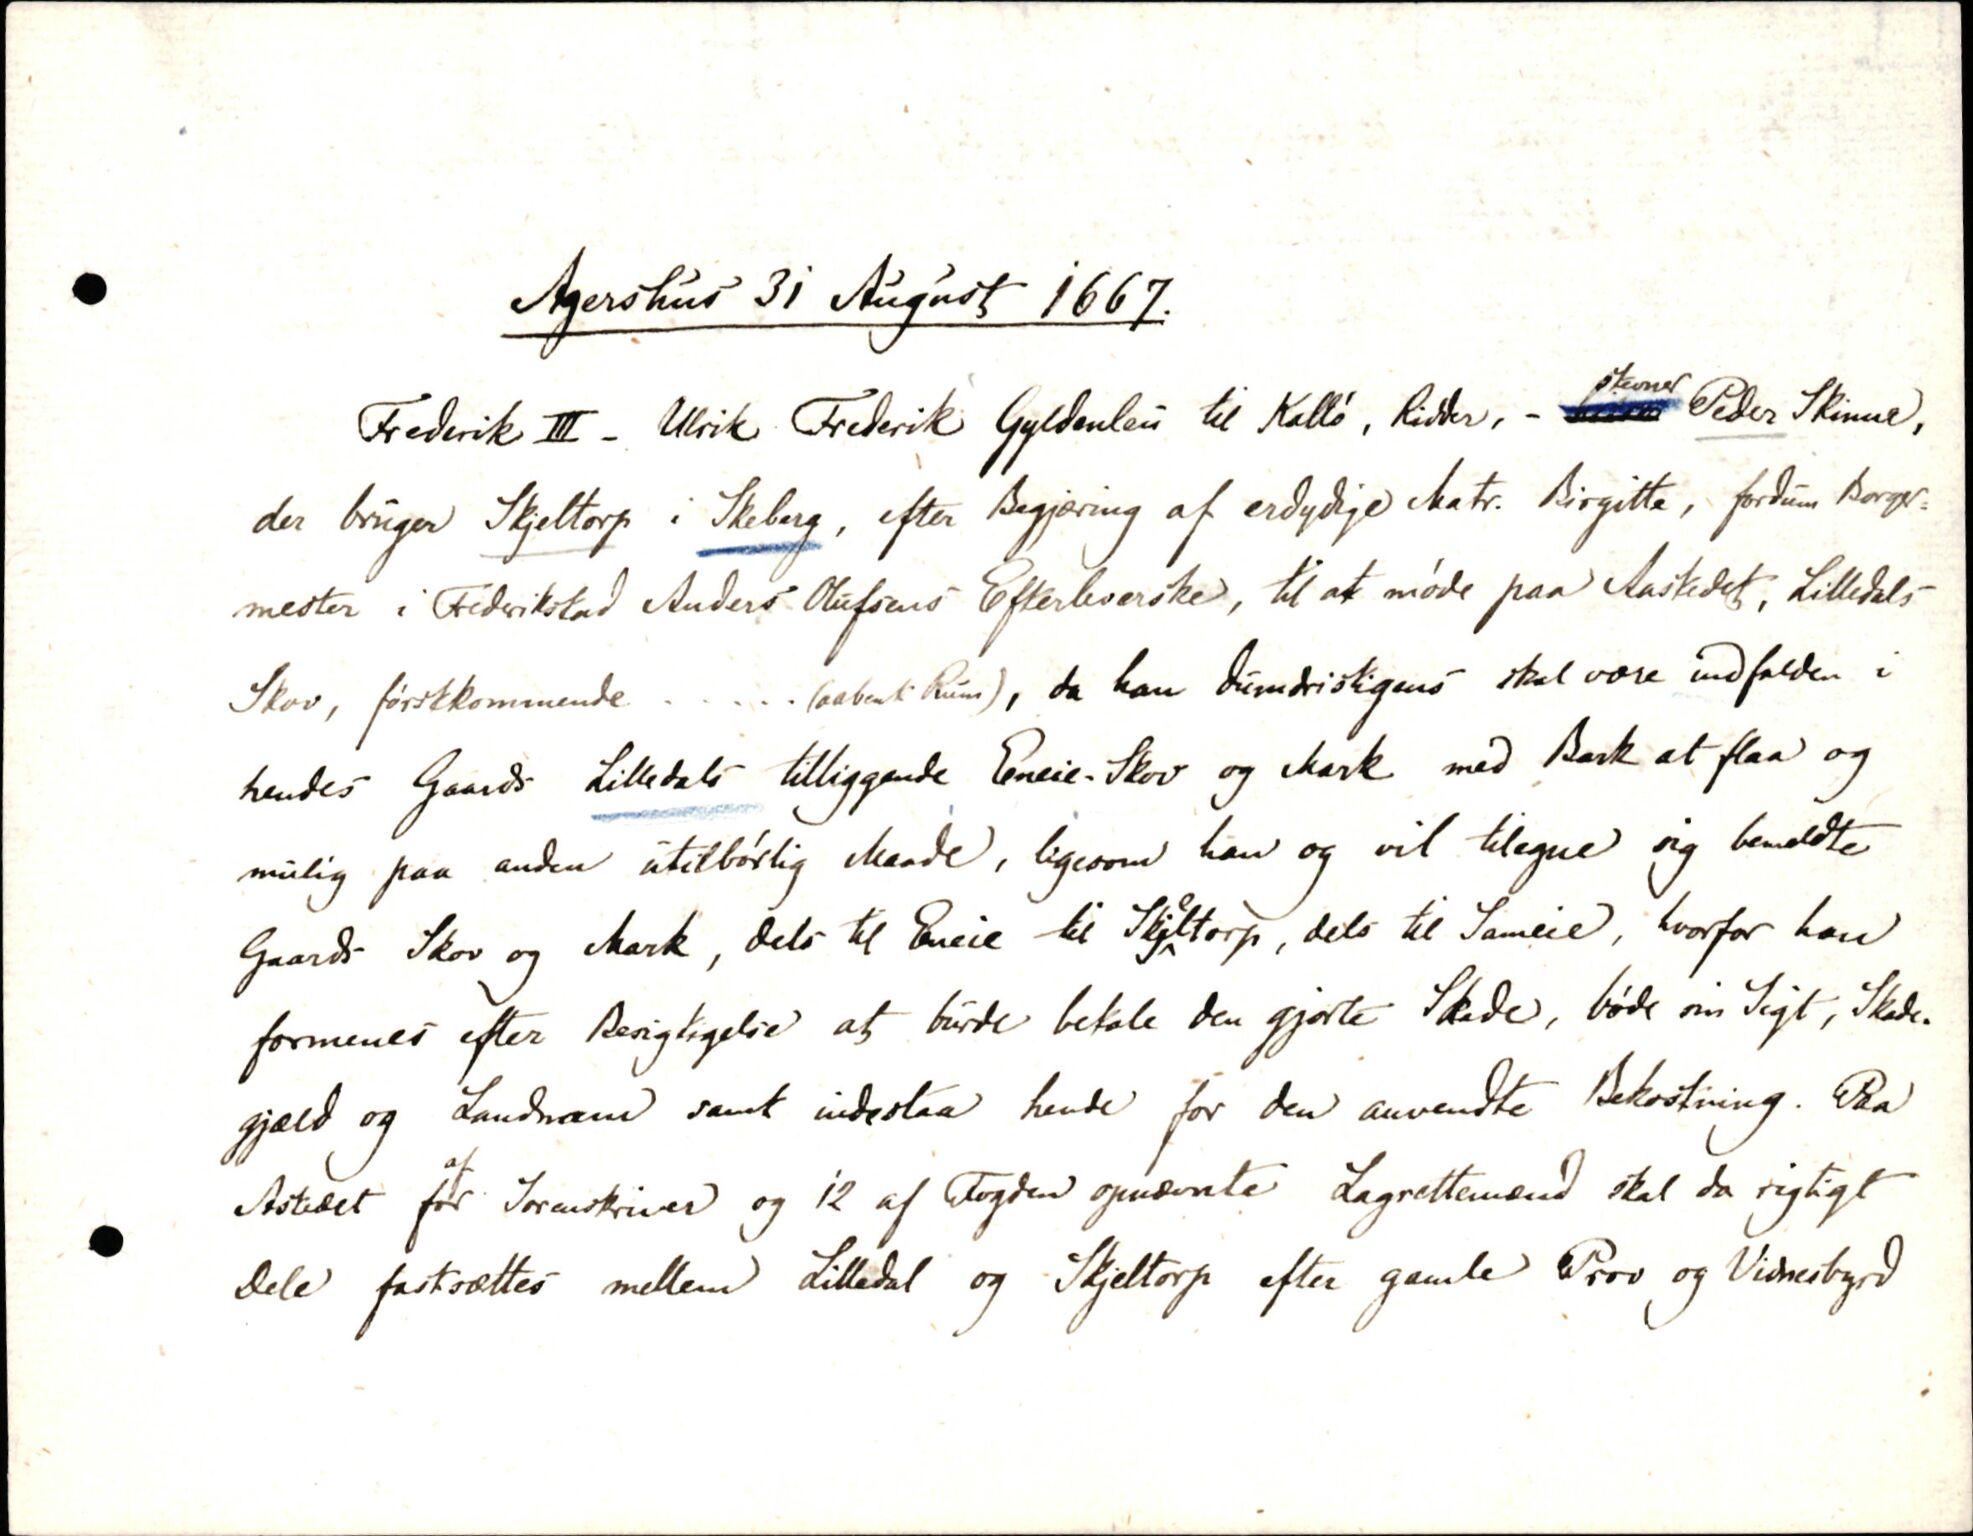 Agershus 31 August 1667.
Frederik III - Ulrik Frederik Gyldenleu til Kalló, Ridder, - stevner Peder Skinne,
der bruger Skjeltorp i Skeberg, efter Begjæring af erdydige Matr. Birgitte, fordum Borger-
mester i Frederikstad Anders Olufsens Efterleverske, til at móde paa Aastedet, Lilledals
Skov, fórstkommende ..... (aabent Rum), da han dumdristigens skal være indfalden i
hendes Gaards Lilledals tilliggende Eneie-Skov og Mark med Bark at flaa og
mulig paa anden utilbórlig Maade, ligesom han og vil tilegne sig bemeldte
Gaards Skov og Mark, dels til Eneie til Skjeltorp, dels til Sameie, hvorfor han
formenes efter Besigtigelse at burde betale den gjorte Skade, bóde sin Sigt, Skade-
gjæld og Landnam samt indestaa hende for den anvendte Bekostning. Paa
Astedet for af Sorenskriver og 12 af Fogden opnævnte Lagrettemænd skal da rigtigt
Dele fastsættes mellem Lilledal og Skjeltorp efter gamle Prov og Vidnesbyrd